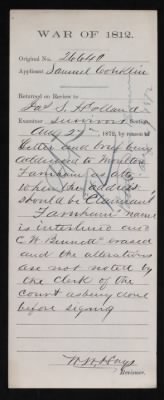 WAR OF 1812.
Original No. 26640
Applicant Samuel Conklin
Returned on Review to
Jas S. Holland
Examiner Survivors Section
Aug 2 1872, by reason of
letter and being
addressed to Moulton
Farnham as atty
when the address
should be "Claimant"
"Farnham" name
is interlined and
C. W. Bennett erased
and the alterations
are not noted by
the clerk of the
court as being done
before signing
Reviewer.